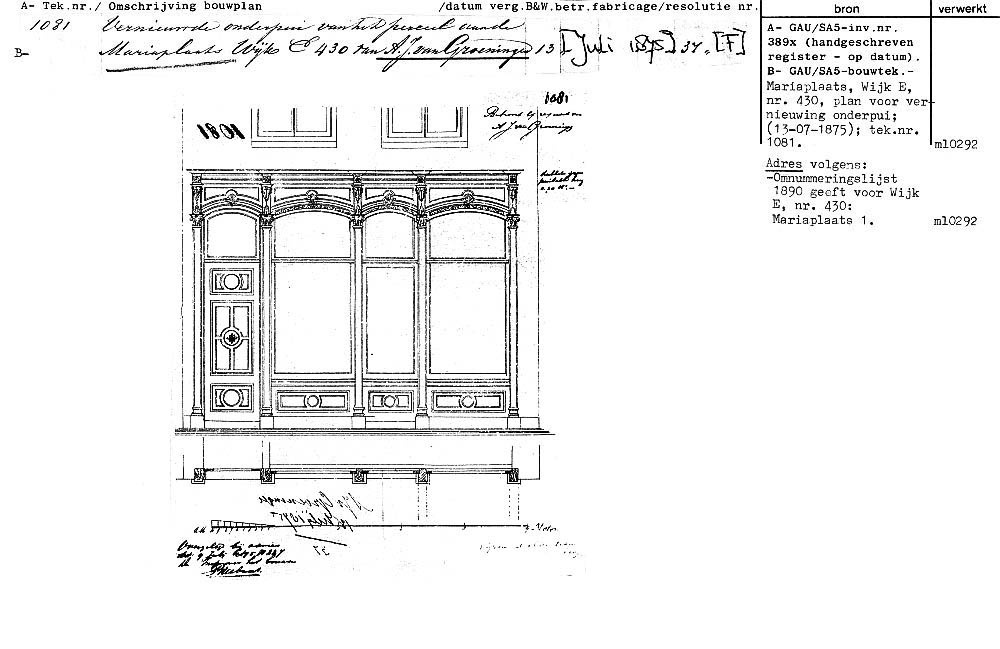 A- Tek.nr./ Omschrijving bouwplan /datum verg.B&W.betr.fabricage/resolutie nr.
bron
verwerkt
1081 Vernieuwde onderpui van het perceel aan de
B- Mariaplaats Wijk E 430 van A. J. van Groeninge 13 [Juli 1875] 37. [F]
A- GAU/SA5-inv.nr.
389x (handgeschreven
register - op datum).
B- GAU/SA5-bouwtek.-
Mariaplaats, Wijk E,
nr. 430, plan voor ver-
nieuwing onderpui;
(13-07-1875); tek.nr.
1081. ml0292
Adres volgens:
-Omnummeringslijst
1890 geeft voor Wijk
E, nr. 430:
Mariaplaats 1. ml0292
1081
1801
Behoort bij request van
A J van Groninge
37